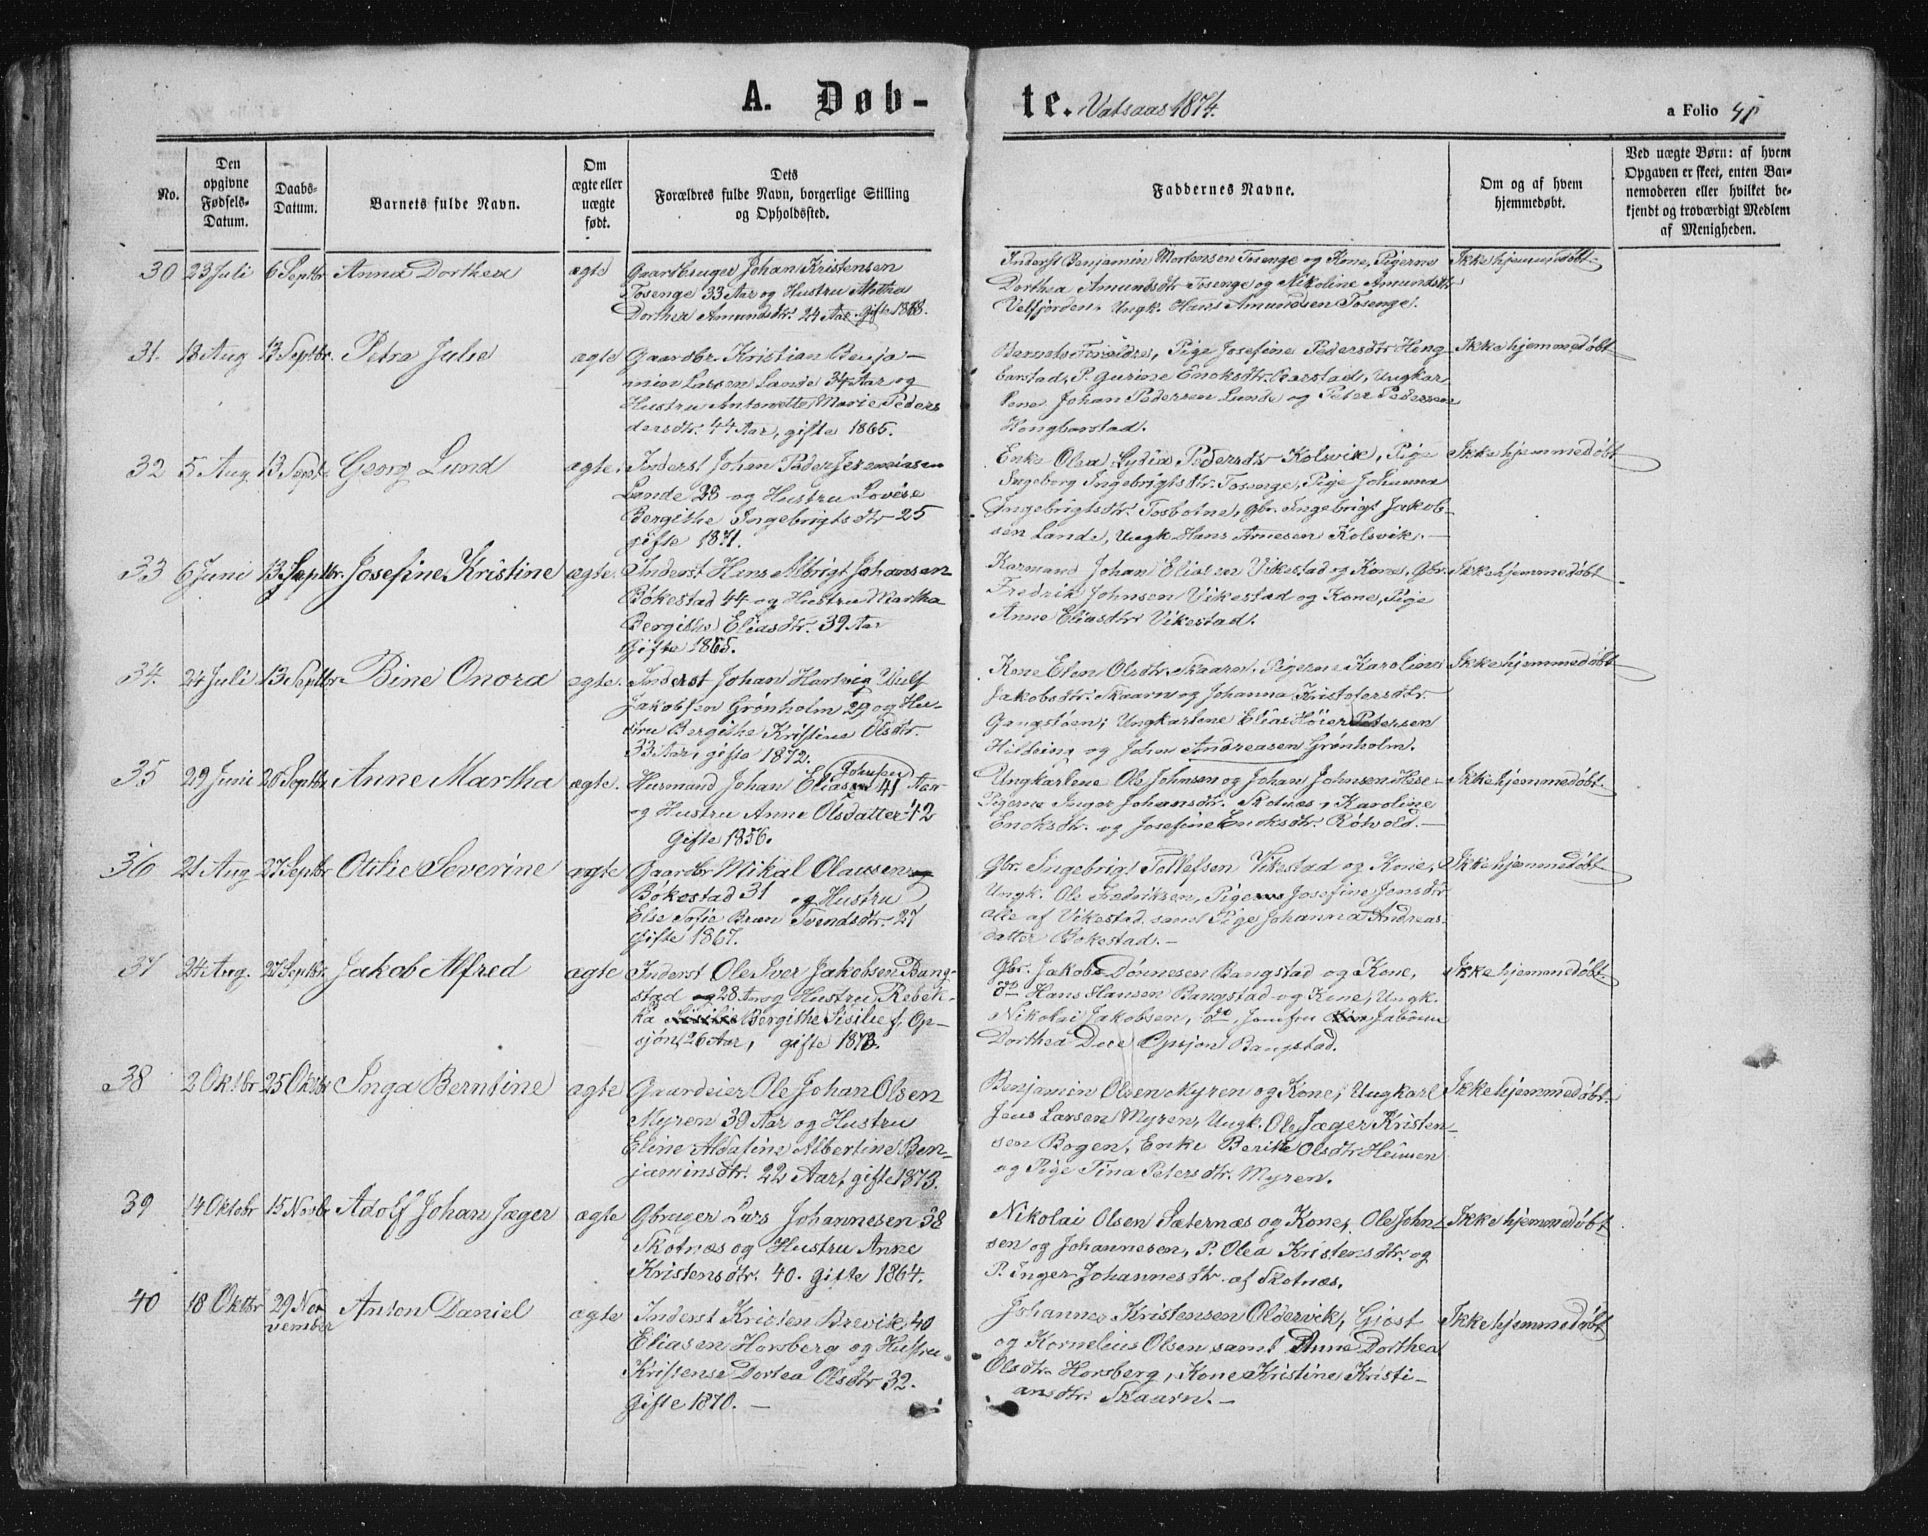 A. Døb-
te. Vatsaas 1874.
a Folio 45
No.
Den opgivne Fødsels-Datum.
Daabs-Datum.
Barnets fulde Navn.
Om ægte eller uægte født.
Dets Forældres fulde Navn, borgerlige Stilling og Opholdssted.
Faddernes Navne.
Om og af hvem hjemmedøbt.
Ved uægte Børn: af hvem Opgaven er skeet, enten Barnemoderen eller hvilket bekjendt og troværdigt Medlem af Menigheden.
30 23 Juli 6 Septbr Anna Dorthea ægte
Gaardbruger Johan Kristensen
Tosenge 33 Aar og Hustru Mathea
Dorthea Amundsdtr. 24 Aar gifte 1873.
Inderst Benjamin Mortensen Tosenge og Kone, Pigerne
Dorthea Amundsdtr Tosenge og Nikoline Amundsdtr
Velfjorden, Ungk. Hans Amundsen Tosenge.
Ikke hjemmedøbt
31. 18 Aug 13 Septbr. Petra Julie ægte
Gaardbr. Kristian Benja-
min Larsen Lande 34 Aar og
Hustru Antonette Marie Peders
dersdtr. 44 Aar, gifte 1865.
Barnets Forældre, Pige Josefine Pedersdtr Heng-
barstad, P. Gurine Enoksdtr. Aarstad, Ungkar
lene Johan Pedersen Lunde og Peter Pedersen
Hongbarstad.
Ikke hjemmedøbt
32 5 Aug 13 Septb. Georg Lund ægte.
Inderst Johan Peder Jeremiasen
Lande 28 og Hustru Lovise
Bergithe Ingebrigtsdtr 25
gifte 1871.
Enke Olea Lydia Pedersdtr Kolsvik, Pige
Ingeborg Ingebrigtsdtr. Tosenge, Pige Johanna
Ingebrigtsdtr. Tosbotne, Gbr. Ingebrigt Jakob-
sen Lande, Ungk Hans Arnesen Kolsvik. -
Ikke hjemmedøbt
33 6 Juni 13 Septbr. Josefine Kristine ægte.
Inderst Hans Albrigt Johansen
Bøkestad 44 og Hustru Martha
Bergithe Eliasdtr. 39 Aar
Gifte 1865.
Karmand Johan Eliasen Vikestad og Kone, Gbr.
Fredrik Johnsen Vikestad og Kone, Pige
Anne Eliasdtr Vikestad.
Ikke hjemmedøbt
34. 24 Juli 13 Septbr Bine Onora ægte.
Inderst Johan Hartvig Wulf
Jakobsen Grønholm 29 og Hu-
stru Bergithe Kristine Olsdtr.
33 Aar, gifte 1872.
Kone Elen Olsdtr. Skaarn, Pigerne Karoline
Jakobsdtr. Skaarn og Johanna Kristofersdtr.
Gangstøen, Ungkarlene Elias Høier Petersen
Hilbring og John Andreasen Grønholm.
Ikke hjemmedøbt
35 29 Juni 20 Septbr Anne Martha ægte.
Husmand Johan Eliasen Johnsen 41 Aar
og Hustru Anne Olsdatter 42
Gifte 1856.
Ungkarlene Ole Johnsen og Johan Johnsen Hese-
Pigerne Inger Johansdtr. Skotnes, Karoline
Enoksdtr. og Josefine Enoksdtr. Røtvold. -
Ikke hjemmedøbt.
36 21 Aug 27 Septbr Otilie Severine ægte
Gaardbr Mikal Olausen og
Bøkestad 31 og Hustru
Else Sofie Bran Svendsdtr. 27
Gifte 1867.
Gbr. Ingebrigt Tollefsen Vikestad og Kone,
Ungk. Ole Fredriksen, Pigerne Josefine Jensdtr
alle af Vikestad samt Pige Johanna Andreas-
datter Bøkestad. -
Ikke hjemmedøbt
37 24 Aug. 27 Septbr. Jakob Alfred ægte
Inderst Ole Iver Jakobsen Bang-
stad og 28 Aar og Hustru Rebek-
ka Sisilie Bergithe Sisilie f. Op-
sjøn 26 Aar, gifte 1873.
Gbr. Jakob Dønnesen Bangstad og Kone,
do Hans Hansen Bangstad og Kone, Ungk.
Nikolai Jakobsen, do, Jomfru Jabine
Dorthea Dree Opsjøn Bangstad.
Ikke hjemmedøbt
38 2 Oktbr 25 Oktbr Inga Berntine ægte
Gaardeier Ole Johan Olsen
Myren 39 Aar og Hustru
Eline Aldafine Albertine Ben-
jaminsdtr. 22 Aar, gifte 1873.
Benjamin Olsen Myren og Kone, Ungkarl
Jens Larsen Myren, Ungk. Ole Jæger Kristen-
sen Bogen, Enke Berithe Olsdtr Heimen
og Pige Tina Petersdtr. Myren.
Ikke hjemmedøbt
39 14 Oktobr 15 Novbr Adolf Johan Jæger ægte
Gbruger Lars Johannesen 38
Skotnæs og Hustru Anne
Kristensdtr. 40. gifte 1864.
Nikolai Olsen Sæternæs og Kone, Ole John-
sen og Johannesen, P. Olea Kristensdtr. og
P. Inger Johannesdtr. af Skotnæs.
Ikke hjemmedøbt
40 18 Oktbr 29 Nov
vember Anton Daniel ægte
Inderst Kristen Brevik 40
Eliasen Horsberg og Hustru
Kristense Dortea Olsdtr 32.
Gifte 1870. -
Johannes Kristensen Oldervik, Gjøst
og Kornelius Olsen samt Anne Dorthea
Olsdtr. Horsberg, Kone Kristine Kristi-
ansdtr. Skaarn. -
Ikke hjemmedøbt